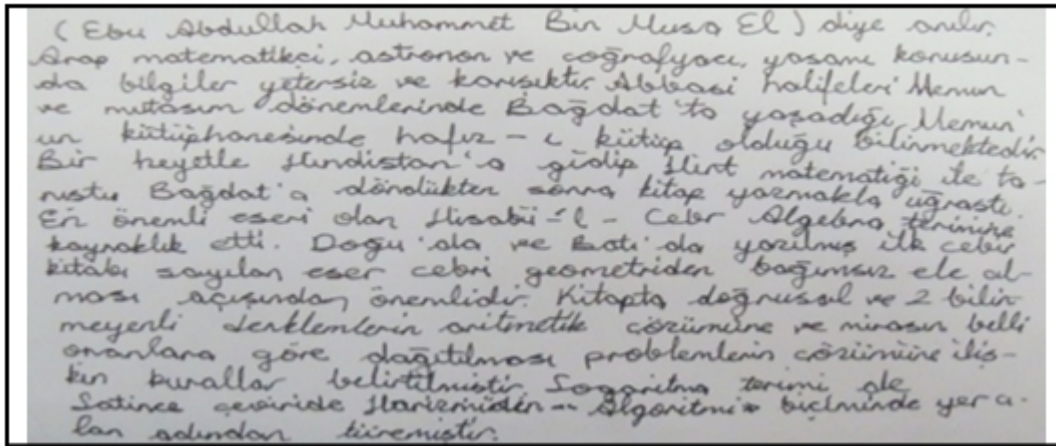 (Ebu Abdullah Muhammet Bin Musa El) diye anılır.
Arap matematikçi, astronom ve coğrafyacı, yaşamı konusun-
da bilgiler yetersiz ve karışıktır. Abbasi halifeleri Memun
ve mutasım dönemlerinde Bağdat'ta yaşadığı, Memun'
un kütüphanesinde hafız-ı kütüp olduğu bilinmektedir.
Bir heyetle Hindistan'a gidip Hint matematiği ile ta-
nıştı Bağdat'a döndükten sonra kitap yazmakla uğraştı.
En önemli eseri olan Hisabü-'l-Cebr Algebra terimine
kaynaklık etti. Doğu'da ve Batı'da yazılmış ilk cebir
kitabı sayılan eser cebri geometriden bağımsız ele al-
ması açısından önemlidir. Kitapta doğrusal ve 2 bilin
meyenli denklemlerin aritmetik çözümüne ve mirasın belli
oranlara göre dağıtılması problemlerin çözümüne iliş-
kin kurallar belirtilmiştir. Logaritma terimi de
Latince çeviride Harizmiden -- Algoritmi- biçiminde yer a-
lan adından türemiştir.